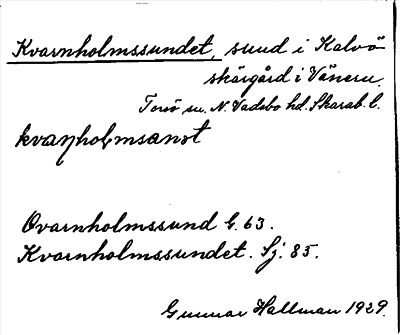 Kvarnholmssundet, sund i Kalvö
skärgård i Vänern.
Torsö sn. N. Vadsbo hd. Skarab. l.
kvaɳhoɭmsanət
Qvarnholmssund G. 63.
Kvarnholmssundet. Sj. 85.
Gunnar Hallman 1929.